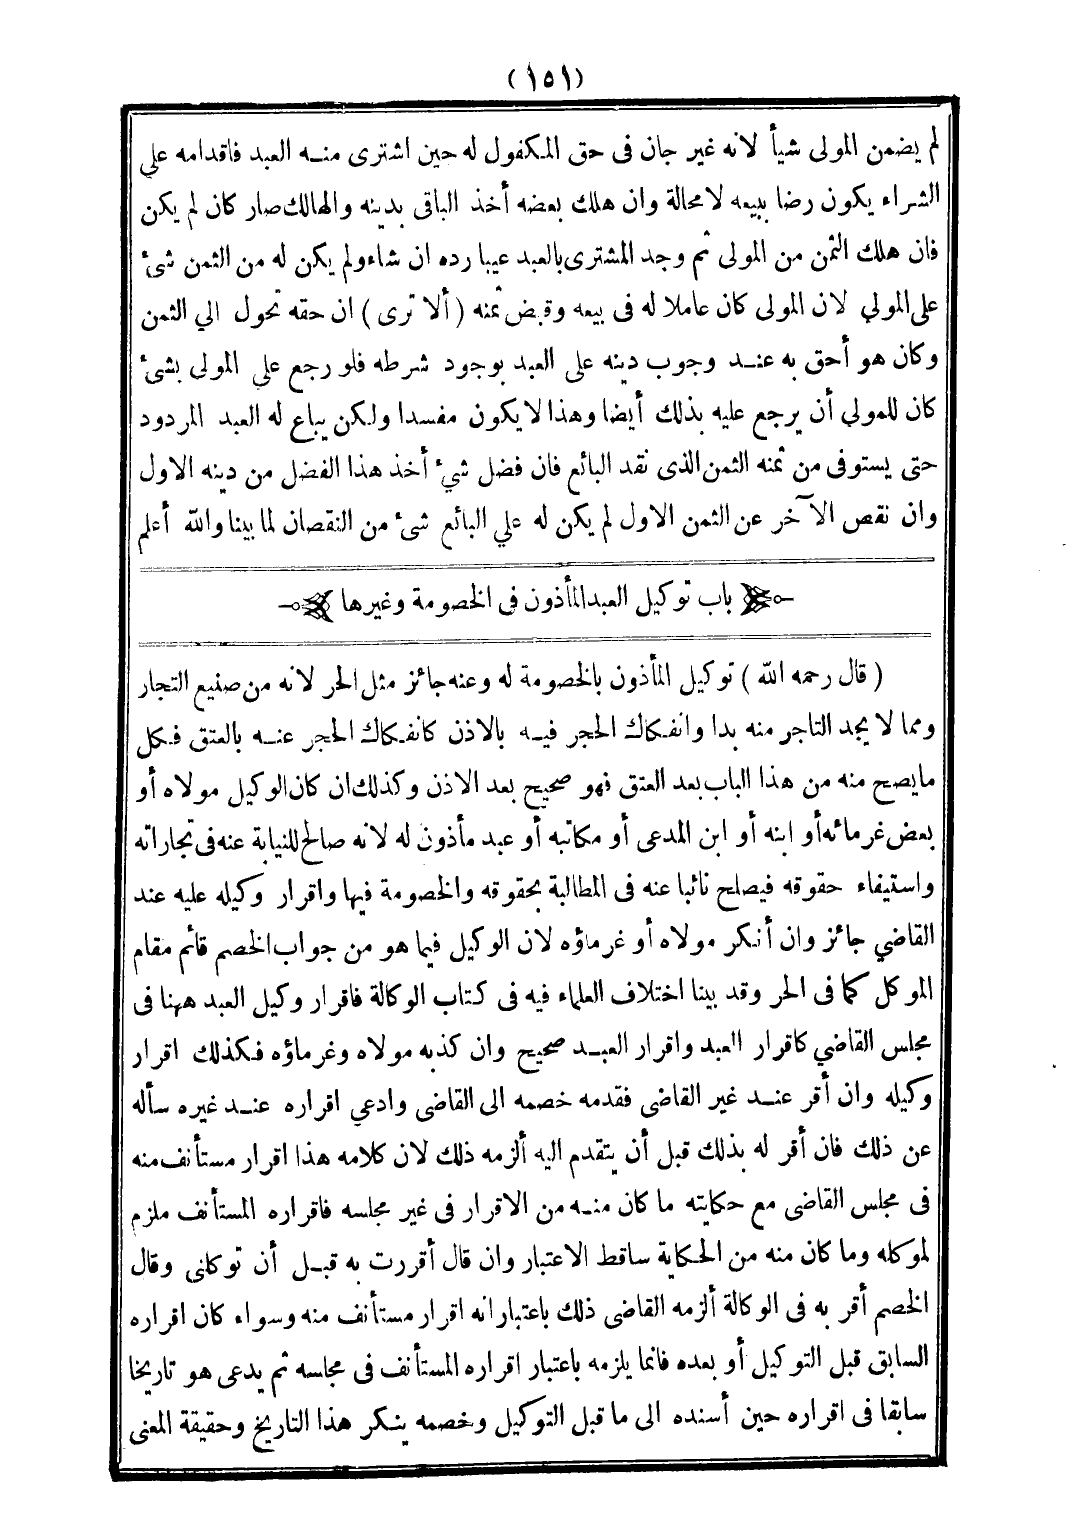 (١٥١)
لم يضمن المولى شيأ لانه غير جان فى حق المكفول له حين اشترى منه العبد فاقدامه علي
الشراء يكون رضا ببيعه لامحالة وان هلك بعضه أخذ الباقى بدينه والهالك صار كان لم يكن
فان هلك الثمن من المولى ثم وجد المشترى بالعبد عيبا رده ان شاء ولم يكن له من الثمن شئ
على المولي لان المولى كان عاملا له فى بيعه وقبض ثمنه ( ألا ترى ) ان حقه تحول الي الثمن
وكان هو أحق به عند وجوب دينه على العبد بوجود شرطه فلو رجع علي المولى بشئ
كان للمولي أن يرجع عليه بذلك أيضا وهذا لا يكون مفسدا ولكن يباع له العبد المردود
حتى يستوفى من ثمنه الثمن الذى نقد البائع فان فضل شئ أخذ هذا الفضل من دينه الاول
وان نقص الآخر عن الثمن الاول لم يكن له علي البائع شئ من النقصان لما بينا والله أعلم
باب توكيل العبد المأذون فى الخصومة وغيرها
( قال رحمه الله ) توكيل المأذون بالخصومة له وعنه جائز مثل الحر لانه من صنيع التجار
ومما لا يجد التاجر منه بدا وانفكاك الحجر فيه بالاذن كانفكاك الحجر عنه بالعتق فكل
ما يصح منه من هذا الباب بعد العتق فهو صحيح بعد الاذن وكذلك ان كان الوكيل مولاه أو
بعض غرمائه أو ابنه أو ابن المدعى أو مكاتبه أو عبد مأذون له لانه صالح للنيابة عنه فى تجاراته
واستيفاء حقوقه فيصلح نائبا عنه فى المطالبة بحقوقه والخصومة فيها واقرار وكيله عليه عند
القاضي جائز وان أنكر مولاه أو غرماؤه لان الوكيل فيما هو من جواب الخصم قائم مقام
الموكل كما فى الحر وقد بينا اختلاف العلماء فيه فى كتاب الوكالة فاقرار وكيل العبد ههنا فى
مجلس القاضي كاقرار العبد واقرار العبد صحيح وان كذبه مولاه وغرماؤه فكذلك اقرار
وكيله وان أقر عند غير القاضى فقدمه خصمه الى القاضى وادعي اقراره عند غيره سأله
عن ذلك فان أقر له بذلك قبل أن يتقدم اليه ألزمه ذلك لان كلامه هذا اقرار مستأنف منه
فى مجلس القاضى مع حكايته ما كان منه من الاقرار فى غير مجلسه فاقراره المستأنف ملزم
لموكله وما كان منه من الحكاية ساقط الاعتبار وان قال أقررت به قبل أن توكلنى وقال
الخصم أقر به فى الوكالة ألزمه القاضى ذلك باعتبار انه اقرار مستأنف منه وسواء كان اقراره
السابق قبل التوكيل أو بعده فانما يلزمه باعتبار اقراره المستأنف فى مجلسه ثم يدعى هو تاريخا
سابقا فى اقراره حين أسنده الى ما قبل التوكيل وخصمه ينكر هذا التاريخ وحقيقة المعنى